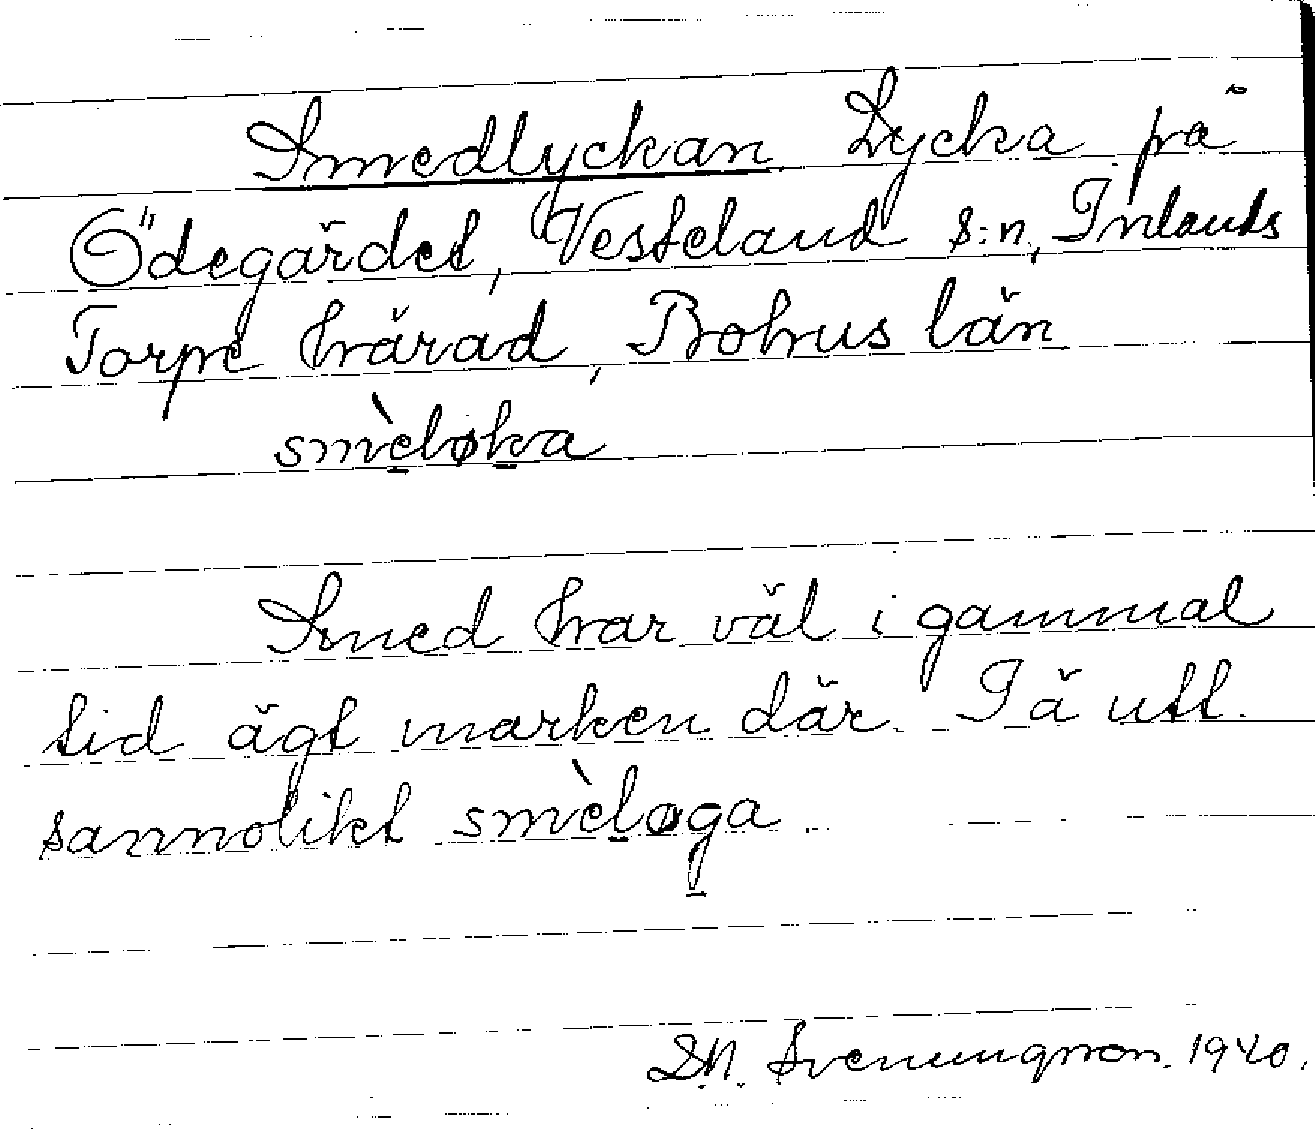 Smedlyckan Lycka på
Ödegärdet, Vesteland s:n, Inlands
Torpe härad, Bohus län
smèløka
Smed har väl i gammal
tid ägt marken där. I ä utt.
sannolikt smèløga
D.N. Svenungsson. 1940.